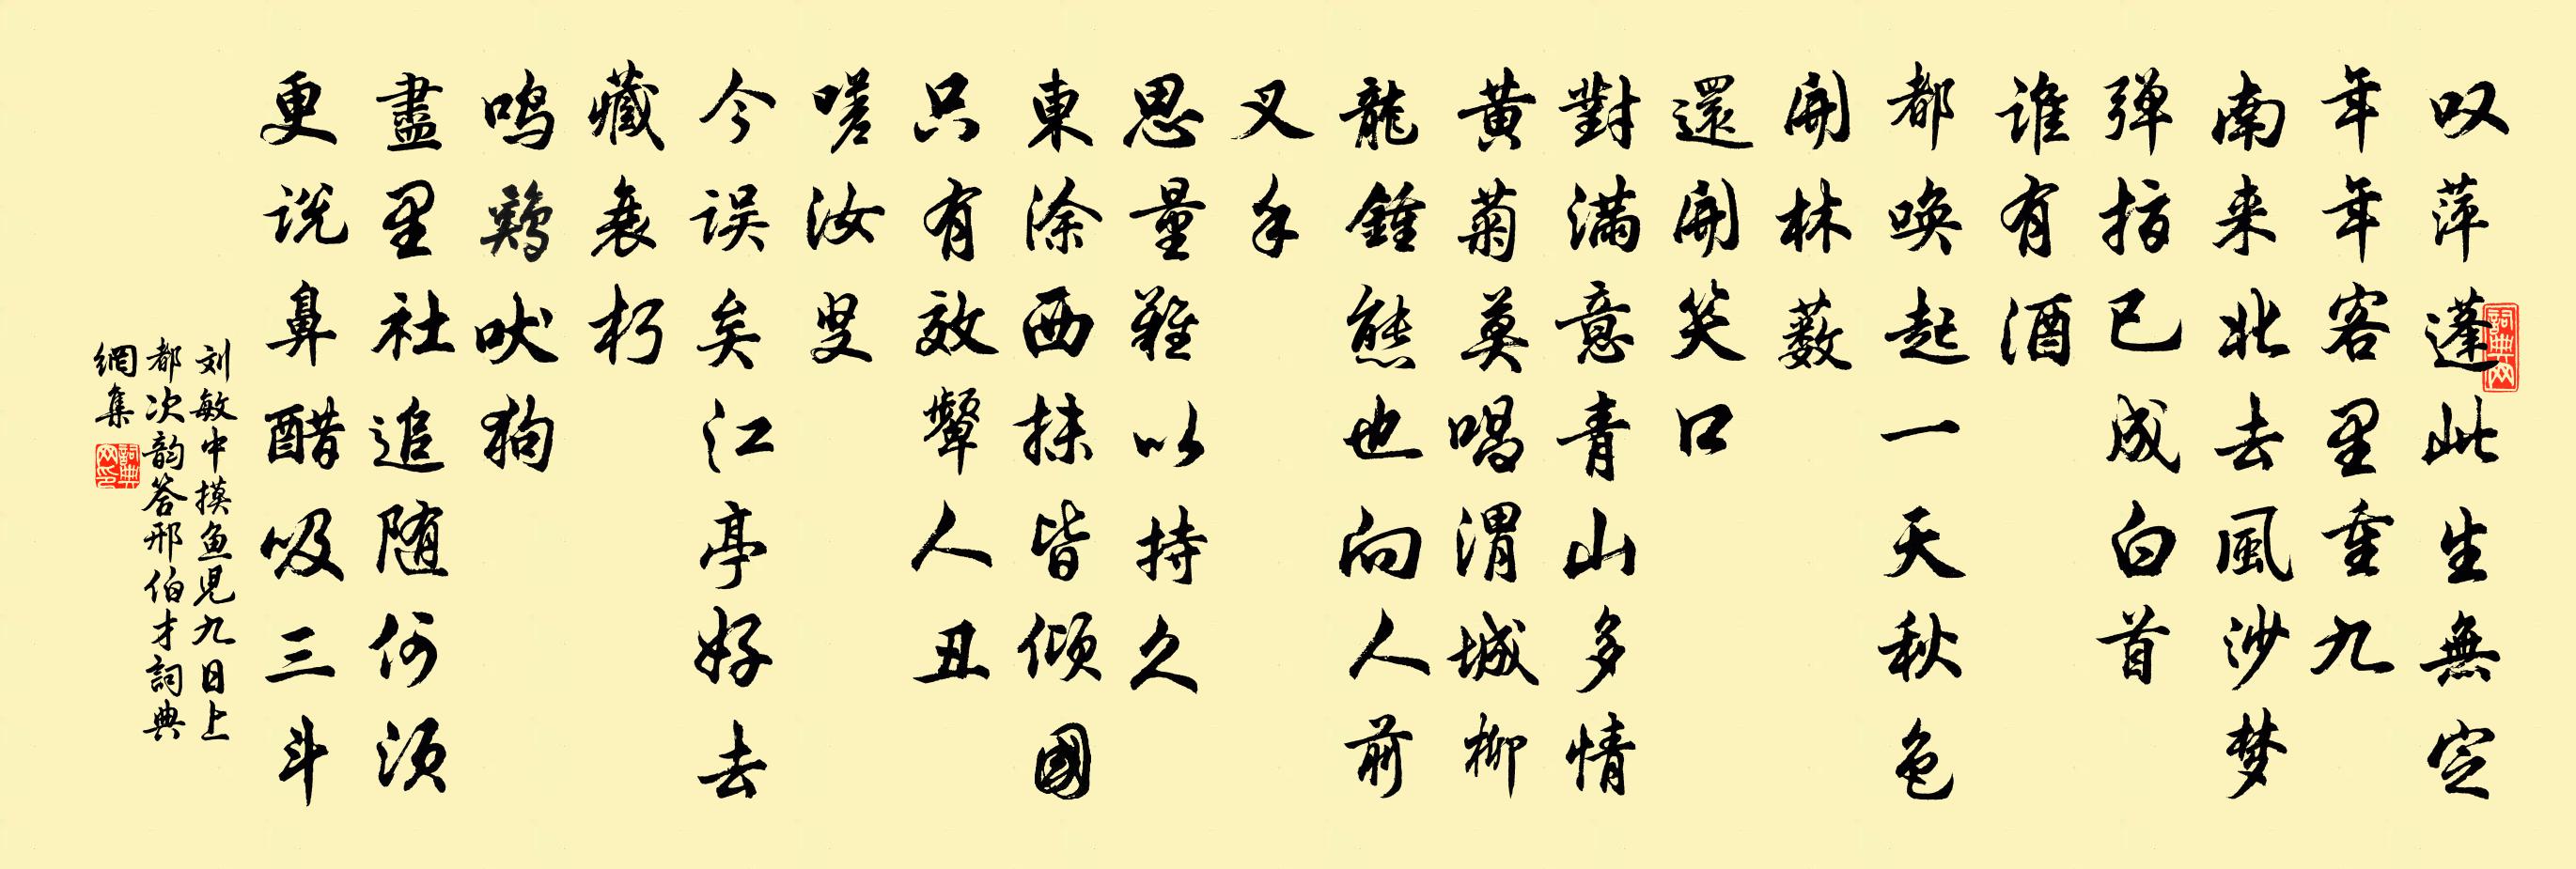 叹萍蓬此生無定
年年客里重九
南来北去風沙梦
弹指已成白首
谁有酒
都唤起一天秋色
開林薮
還開笑口
對满意青山多情
黄菊莫唱渭城柳
龍鍾態也向人前
叉手
思量難以持久
東涂西抹皆倾國
只有效颦人丑
嗟汝叟
今误矣江亭好去
藏衰朽
鸣鷄吠狗
盡里社追随何须
更说鼻醋吸三斗
刘敏中摸鱼児九日上
都次韵答邢伯才詞典
網集